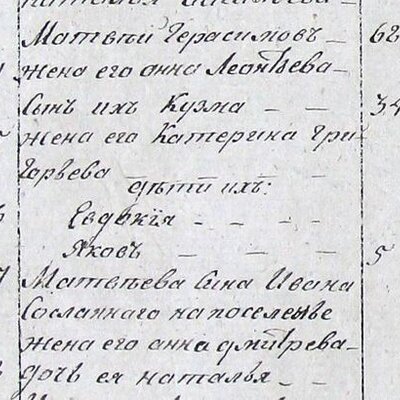 Матвѣй Герасимовъ 62
жена его анна Леонтьева
Сынъ ихъ Кузма 34
жена его Катерина Гри
горьева
дѣти ихъ:
Евдокія
Яковъ 5
Матвѣева сина Ивана
Сосланнаго на поселенье
жена его анна дмитрева
дочь ея наталья